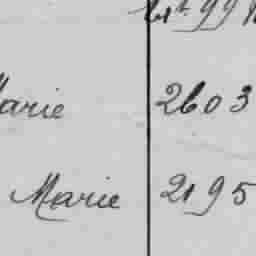 Marie 2603
Marie 2195